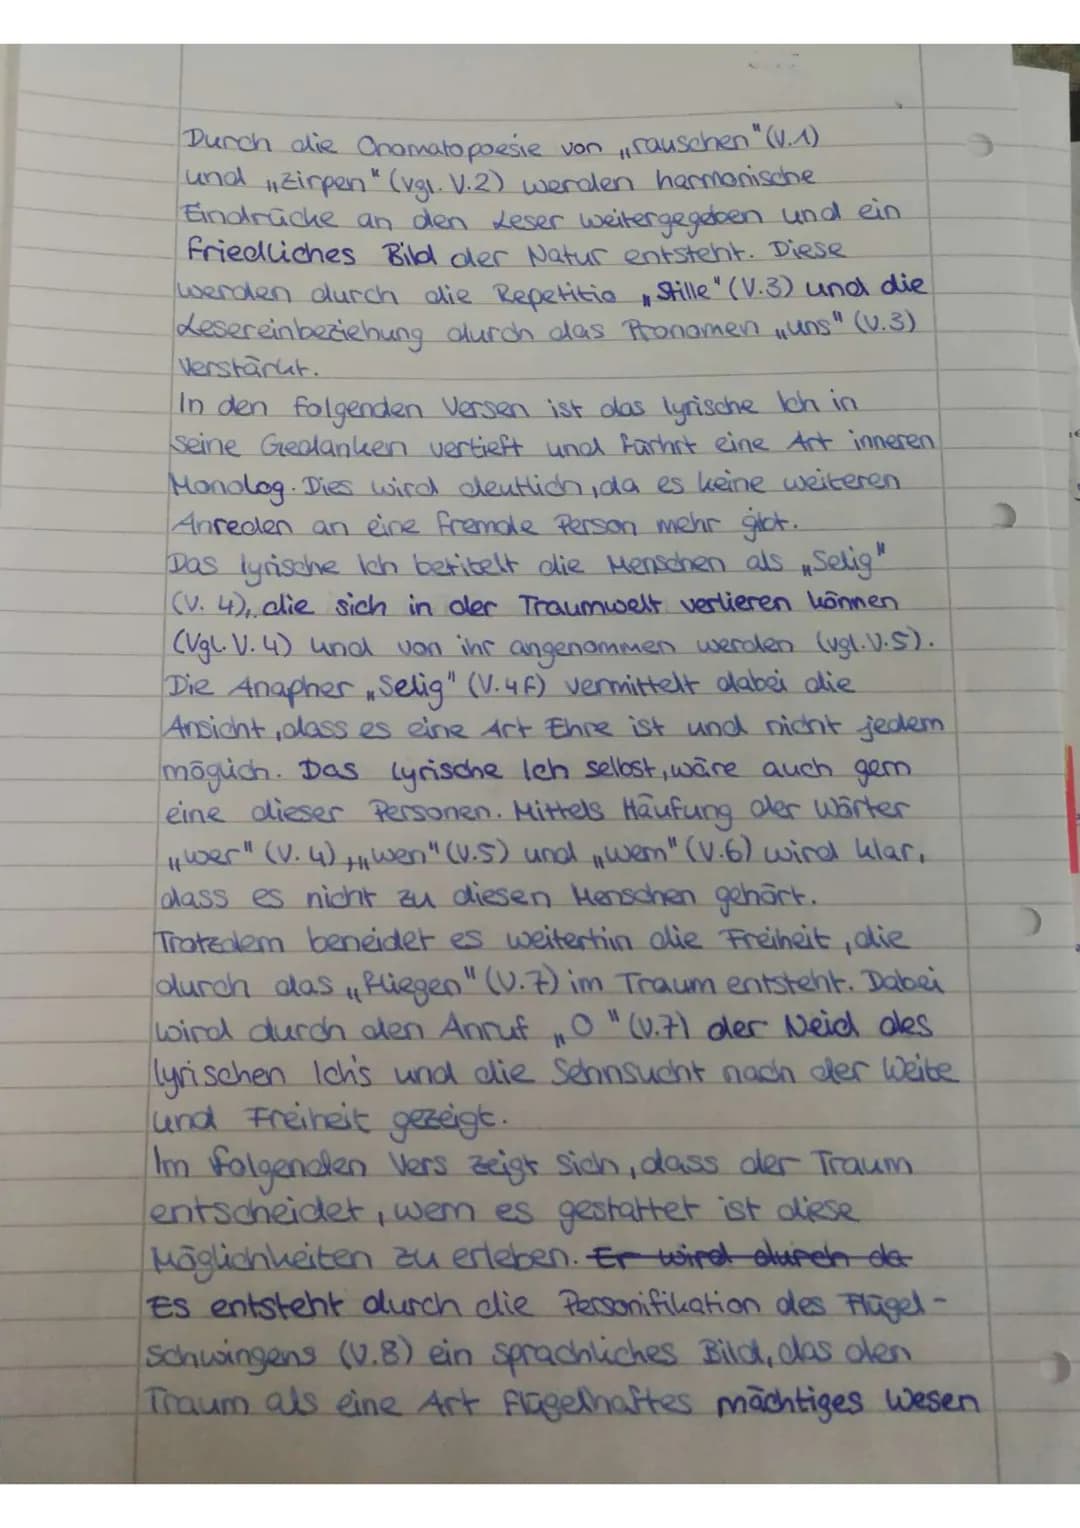 Durch die Onomatopoesie von „rauschen" (V.1)
und „zirpen" (vgl. V.2) werden harmonische
Eindrücke an den Leser weitergegeben und ein
friedliches Bild der Natur entsteht. Diese
werden durch die Repetitio „Stille" (V.3) und die
Lesereinbeziehung durch das Pronomen „uns" (V.3)
verstärkt.
In den folgenden Versen ist das lyrische Ich in
seine Gedanken vertieft und führt eine Art inneren
Monolog. Dies wird deutlich, da es keine weiteren
Anreden an eine fremde Person mehr gibt.
Das lyrische Ich betitelt die Menschen als „Selig"
(V. 4), die sich in der Traumwelt verlieren können
(Vgl. V. 4) und von ihr angenommen werden (vgl. V.5).
Die Anapher „Selig" (V. 4f) vermittelt dabei die
Ansicht, dass es eine Art Ehre ist und nicht jedem
möglich. Das lyrische Ich selbst, wäre auch gern
eine dieser Personen. Mittels Häufung der Wörter
„wer" (V. 4), „wen" (V.5) und „wem" (V.6) wird klar,
dass es nicht zu diesen Menschen gehört.
Trotzdem beneidet es weiterhin die Freiheit, die
durch das „fliegen" (V.7) im Traum entsteht. Dabei
wird durch den Anruf „O" (V.7) der Neid des
lyrischen Ich's und die Sehnsucht nach der Weite
und Freiheit gezeigt.
Im folgenden Vers zeigt sich, dass der Traum
entscheidet, wem es gestattet ist diese
Möglichkeiten zu erleben. Er wird durch da
Es entsteht durch die Personifikation des Flügel-
schwingens (V.8) ein sprachliches Bild, das den
Traum als eine Art flügelhaftes mächtiges Wesen